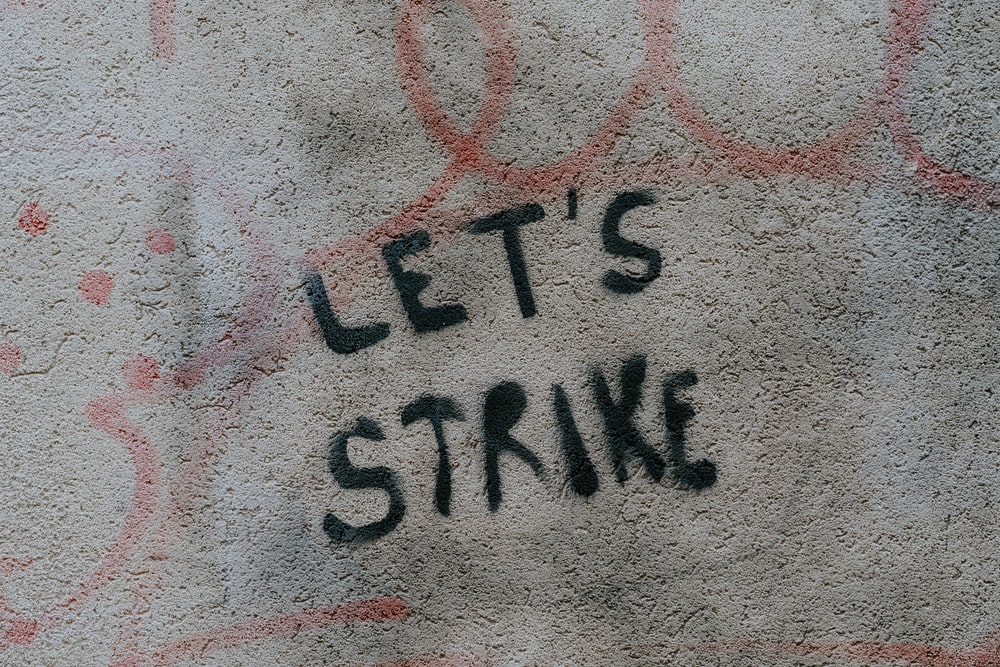 LET'S
STRIKE